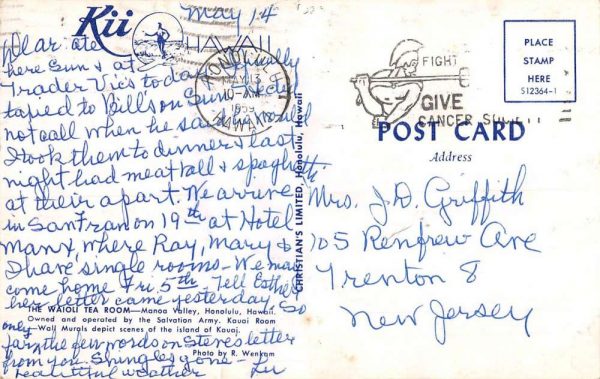 Kii
HAWAII
May 14
Dear
ate
here Sun & at
Trader Vic's today.
taped to Bill's on Sun.
not call when he said he would
I took them to dinner & last
night had meatball & spaghetti
at their apart. We arrive
in San Fran on 19th at Hotel
Manx, where Ray, Mary &
I have single rooms - We may
come home Fri. 5th. Tell Esther
her letter came yesterday. So
THE WAIOLI TEA ROOM—Manoa Valley, Honolulu, Hawaii.
Owned and operated by the Salvation Army. Kauai Room
—Wall Murals depict scenes of the island of Kauai.
Photo by R. Wenkam
only
far the few words on Steve's letter
from you. Shingles gone -
beautiful weather Lu
CHRISTIAN'S LIMITED, Honolulu, Hawaii
HONOLULU
MAY 13
10-AM
1959
HAWAII
FIGHT
GIVE
CANCER
PLACE
STAMP
HERE
S12364-1
POST CARD
Address
Mrs. J. D. Griffith
105 Renfrew Ave
Trenton 8
New Jersey